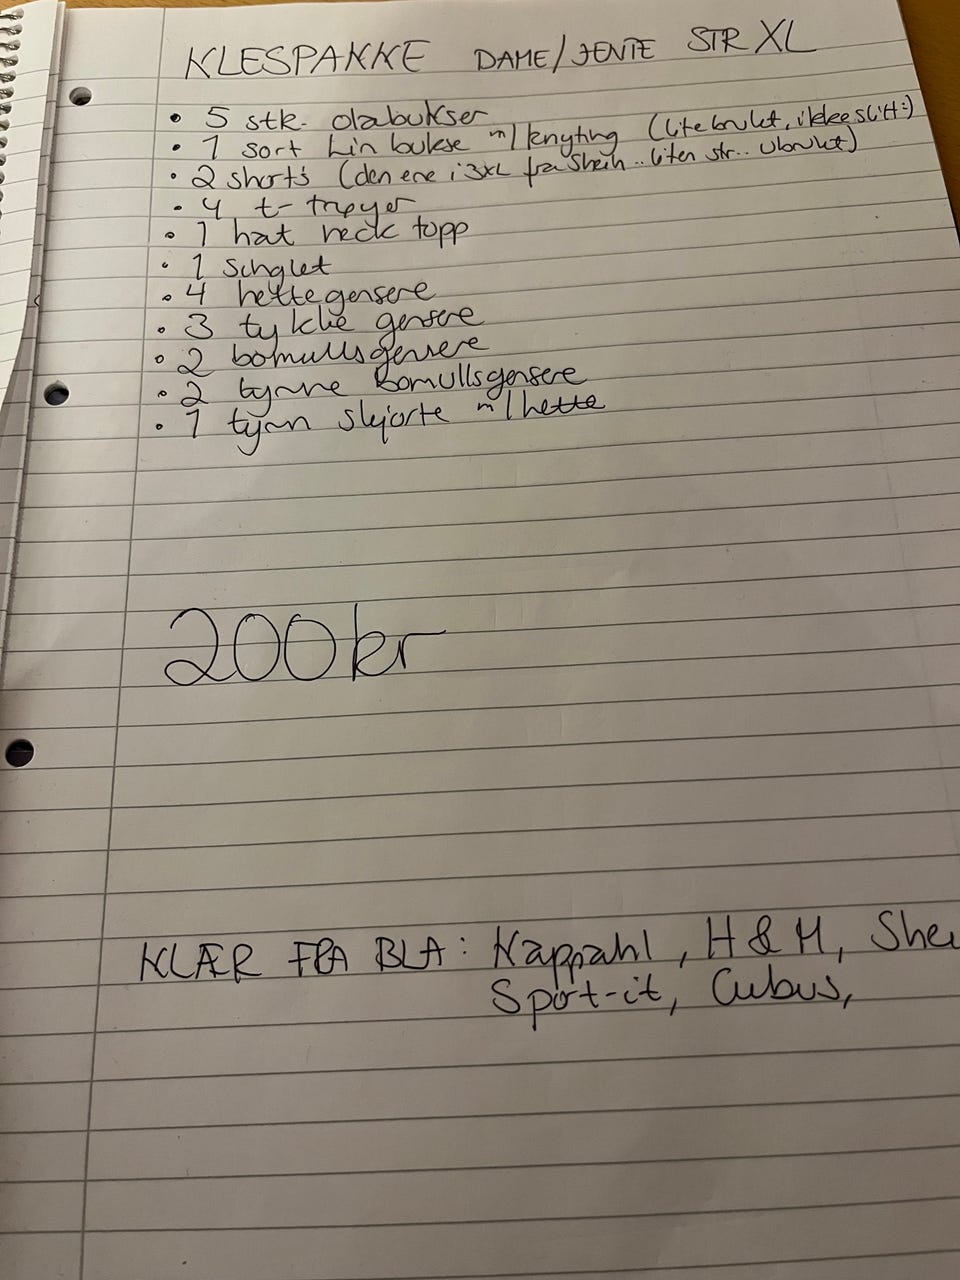 KLESPAKKE DAME/JENTE STR XL
• 5 stk. olabukser
• 1 sort Lin bukse m/knyting (lite brukt, ikke slitt:)
• 2 shorts (den ene i 3XL fra Shein .. liten str.. Ubrukt)
• 4 t-trøyer
• 1 hat neck topp
• 1 singlet
• 4 hettegensere
• 3 tykke gensere
• 2 bomullsgensere
• 2 tynne Bomullsgensere
• 1 tynn skjorte m/hette
200kr
KLÆR FRA BLA: Kappahl, H&M, Shei
Sport-it, Cubus,